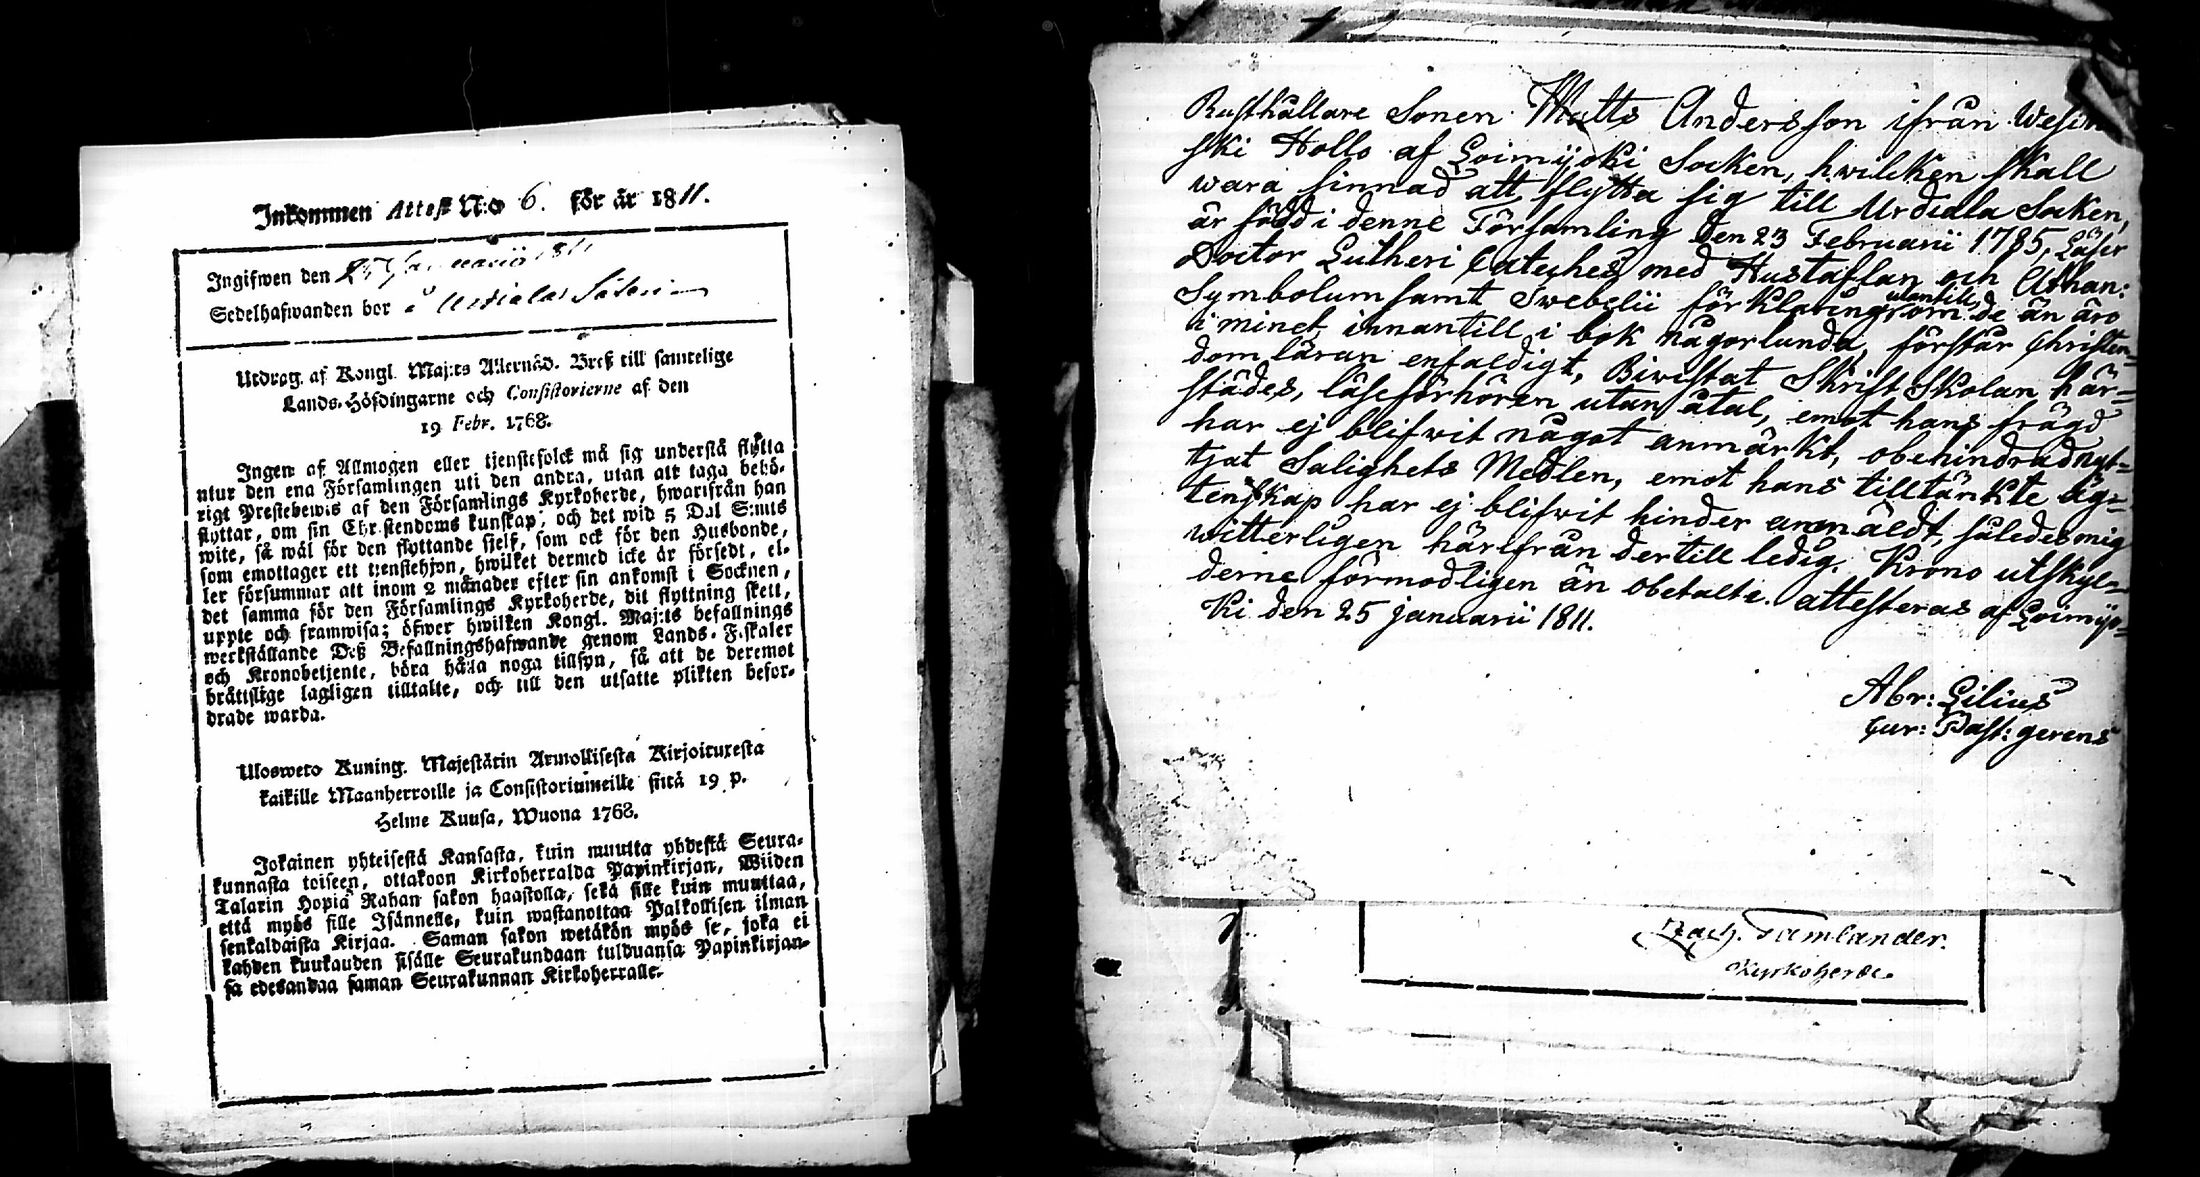 Inkommen Attest N:o 6. för år 1811.
Ingifwen den 25 Januarii 1811
Sedelhafwanden bor i Urdiala
Utdrag af Kongl. Maj:ts Allernåd. Bref till samtelige
Lands-Höfdingarne och Consistorierne af den
19 Febr. 1768.
Ingen af Allmogen eller tjenstefolck må sig understå flytta
utur den ena Församlingen uti den andra, utan att taga behö-
rigt Prestebewis af den Församlings Kyrkoherde, hwarifrån han
flyttar, om sin Christendoms kunskap, och det wid 5 Dal S:mts
wite, så wäl för den flyttande sjelf, som ock för den Husbonde,
som emottager ett tjenstehjon, hwilket dermed icke är försedt, el-
ler försummar att inom 2 månader efter sin ankomst i Socknen,
det samma för den Församlings Kyrkoherde, dit flyttning skett,
uppte och framwisa; öfwer hwilken Kongl. Maj:ts befallnings
werkställande Deß Befallningshafwande genom Lands-Fiskaler
och Kronobetjente, böra hålla noga tillsyn, så att de deremot
bråtislige lagligen tilltalte, och till den utsatte plikten befor-
drade warda.
Ulosweto Kuning. Majestätin Armollisesta Kirjoituxesta
kaikille Maanherroille ja Consistoriumeille siitä 19 p.
Helme Kuusa, Wuona 1768.
Jokainen yhteisestä Kansasta, kuin muutta yhdestä Seura-
kunnasta toiseen, ottakoon Kirkoherralda Papinkirjan, Wiiden
Talarin Hopiä Rahan sakon haastolla, sekä sille kuin muuttaa,
että myös sille Isännelle, kuin wastanottaa Palkollisen ilman
senkaldaista Kirjaa. Saman sakon wetäkön myös se, joka ei
kahden kuukauden sisälle Seurakundaan tulduansa Papinkirjan-
sa edesandaa saman Seurakunnan Kirkoherralle.
Rusthållare Sonen Matts Andersson ifrån
ski Hollo af Loimijoki Socken, hwilcken skall
wara sinnad att flytta sig till Urdiala Socken,
är född i denne Församling den 23 Februarii 1785, Läser
Doctor Lutheri Cateches med Hustaflan och Athan:
Symbolum samt Swebelii förklaring utantill, som de än äro
i minet, innantill i bok någorlunda, förstår Christen-
dom läran enfaldigt, Biwistat Skrift Skolan här-
städes, läseförhören utan åtal, emot hans frägd
har ej blifwit något anmärkt, obehindrad nyt-
tjat Salighets Medlen, emot hans tilltänkte äg-
tenskap har ej blifwit hinder anmäldt, således mig
witterligen härifrån dertill ledig. Krono utskyl-
derne förmodligen än obetalte. attesteras af Loimijo-
ki den 25 januarii 1811.
Abr: Lilius
Cur: Past: gerens
Zach. Tamlander.
Kyrkoherde.